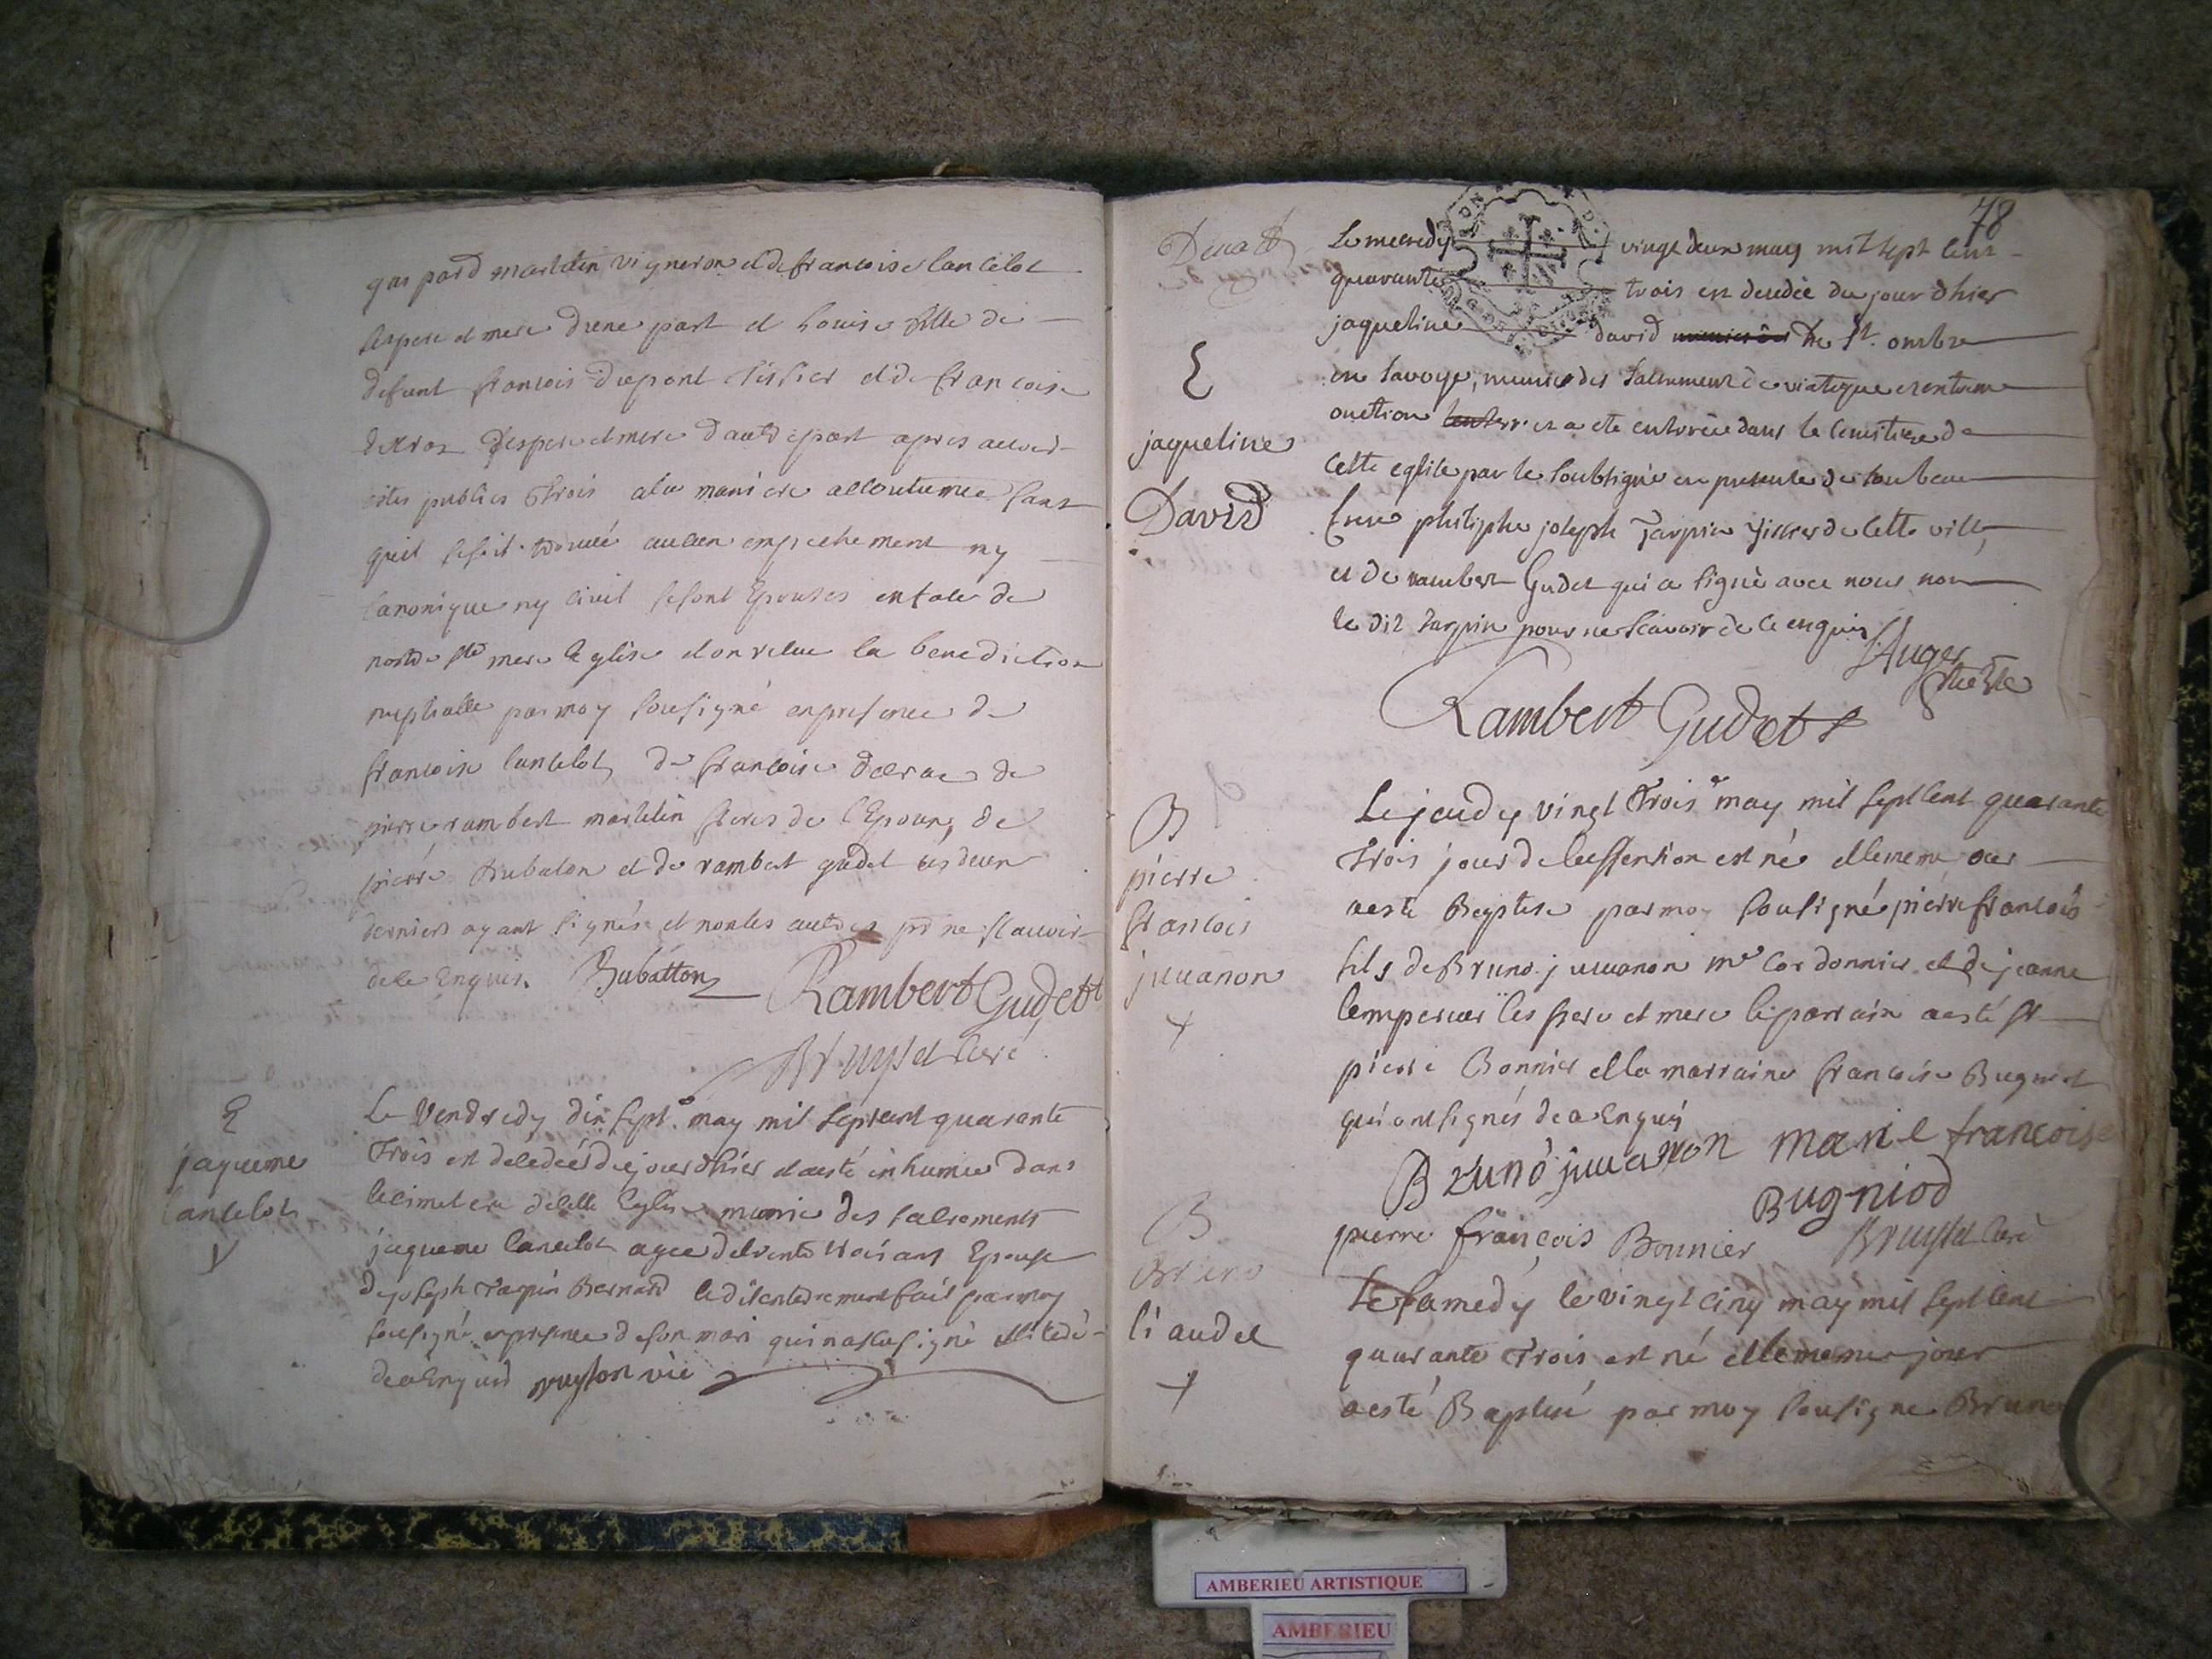 gaspard martelin vigneron et de francoise lancelot
ses pere et mere d'une part et Louise fille de
defunt francois dupont tissier et de francoise
ses pere et mere d'autre part apres
publies Trois a la maniere accoutumee sans
quil se soit trouvé aucun empechement ny
canonique ny civil se sont Epousés en face de
nostre ste mere Eglise et on recue la benediction
nuptialle par moy sousigné en presence de
francoise lancelot, de francoise de
pierre rambert martelin freres de l'Epoux, de
pierre Bubaton et de rambert gudet ces deux
derniers ayant signés et non les autres pr ne scavoir
de ce Enquis. Bubatton Rambert Gudett
Bruyset Curé
E
jaqueme
lancelot
Le Vendredy dix sept may mil sept cent quarante
Trois est decedée du jour d'hier et a esté inhumee dans
le cimetiere de cette Eglise munie des sacrements
jaqueme lancelot agee de trois ans Epouse
de joseph Tarpin Bernard le dit enterrement fait par moy
sousigné en presence de son mari qui n'a sceu signé
de ce Enquis vic
78
E
jaqueline
David
Le mecredy vingt deux may mil sept cent
quarante trois est decedée du jour d'hier
jaqueline david de St. ombre
en Savoye, munie des Sacrements de viatique et extreme
onction et a ete enterrée dans le Cimitiere de
Cette eglise par le Soubsigné en presence de son beau
frere philiphe joseph Tarpin tissier de Cette ville,
et de rambert Gudet qui a signé avec nous non
le dit tarpin pour ne Scavoir de ce enquis
Auger
Rambert Gudett
B
pierre
francois
juuanon
+
Le jeudy vingt Trois may mil sept cent quarante
Trois jour de l'assension est né et le meme jour
a esté Baptisé par moy Sousigné pierre francois
fils de Bruno juuanon me Cordonnier et de jeanne
lempereur ses pere et mere le parrain a esté sr
pierre Bonnier et la marraine francoise Bugniot
qui ont signés de ce Enquis
Bruno juuanon marie francoise
Bugniod
pierre françois Bonnier Bruyset Curé
B
Bruno
liaudet
+
Le samedy le vingt cinq may mil sept cent
quarante Trois est né et le meme jour
a esté Baptisé par moy sousigne Bruno
AMBERIEU ARTISTIQUE
AMBERIEU